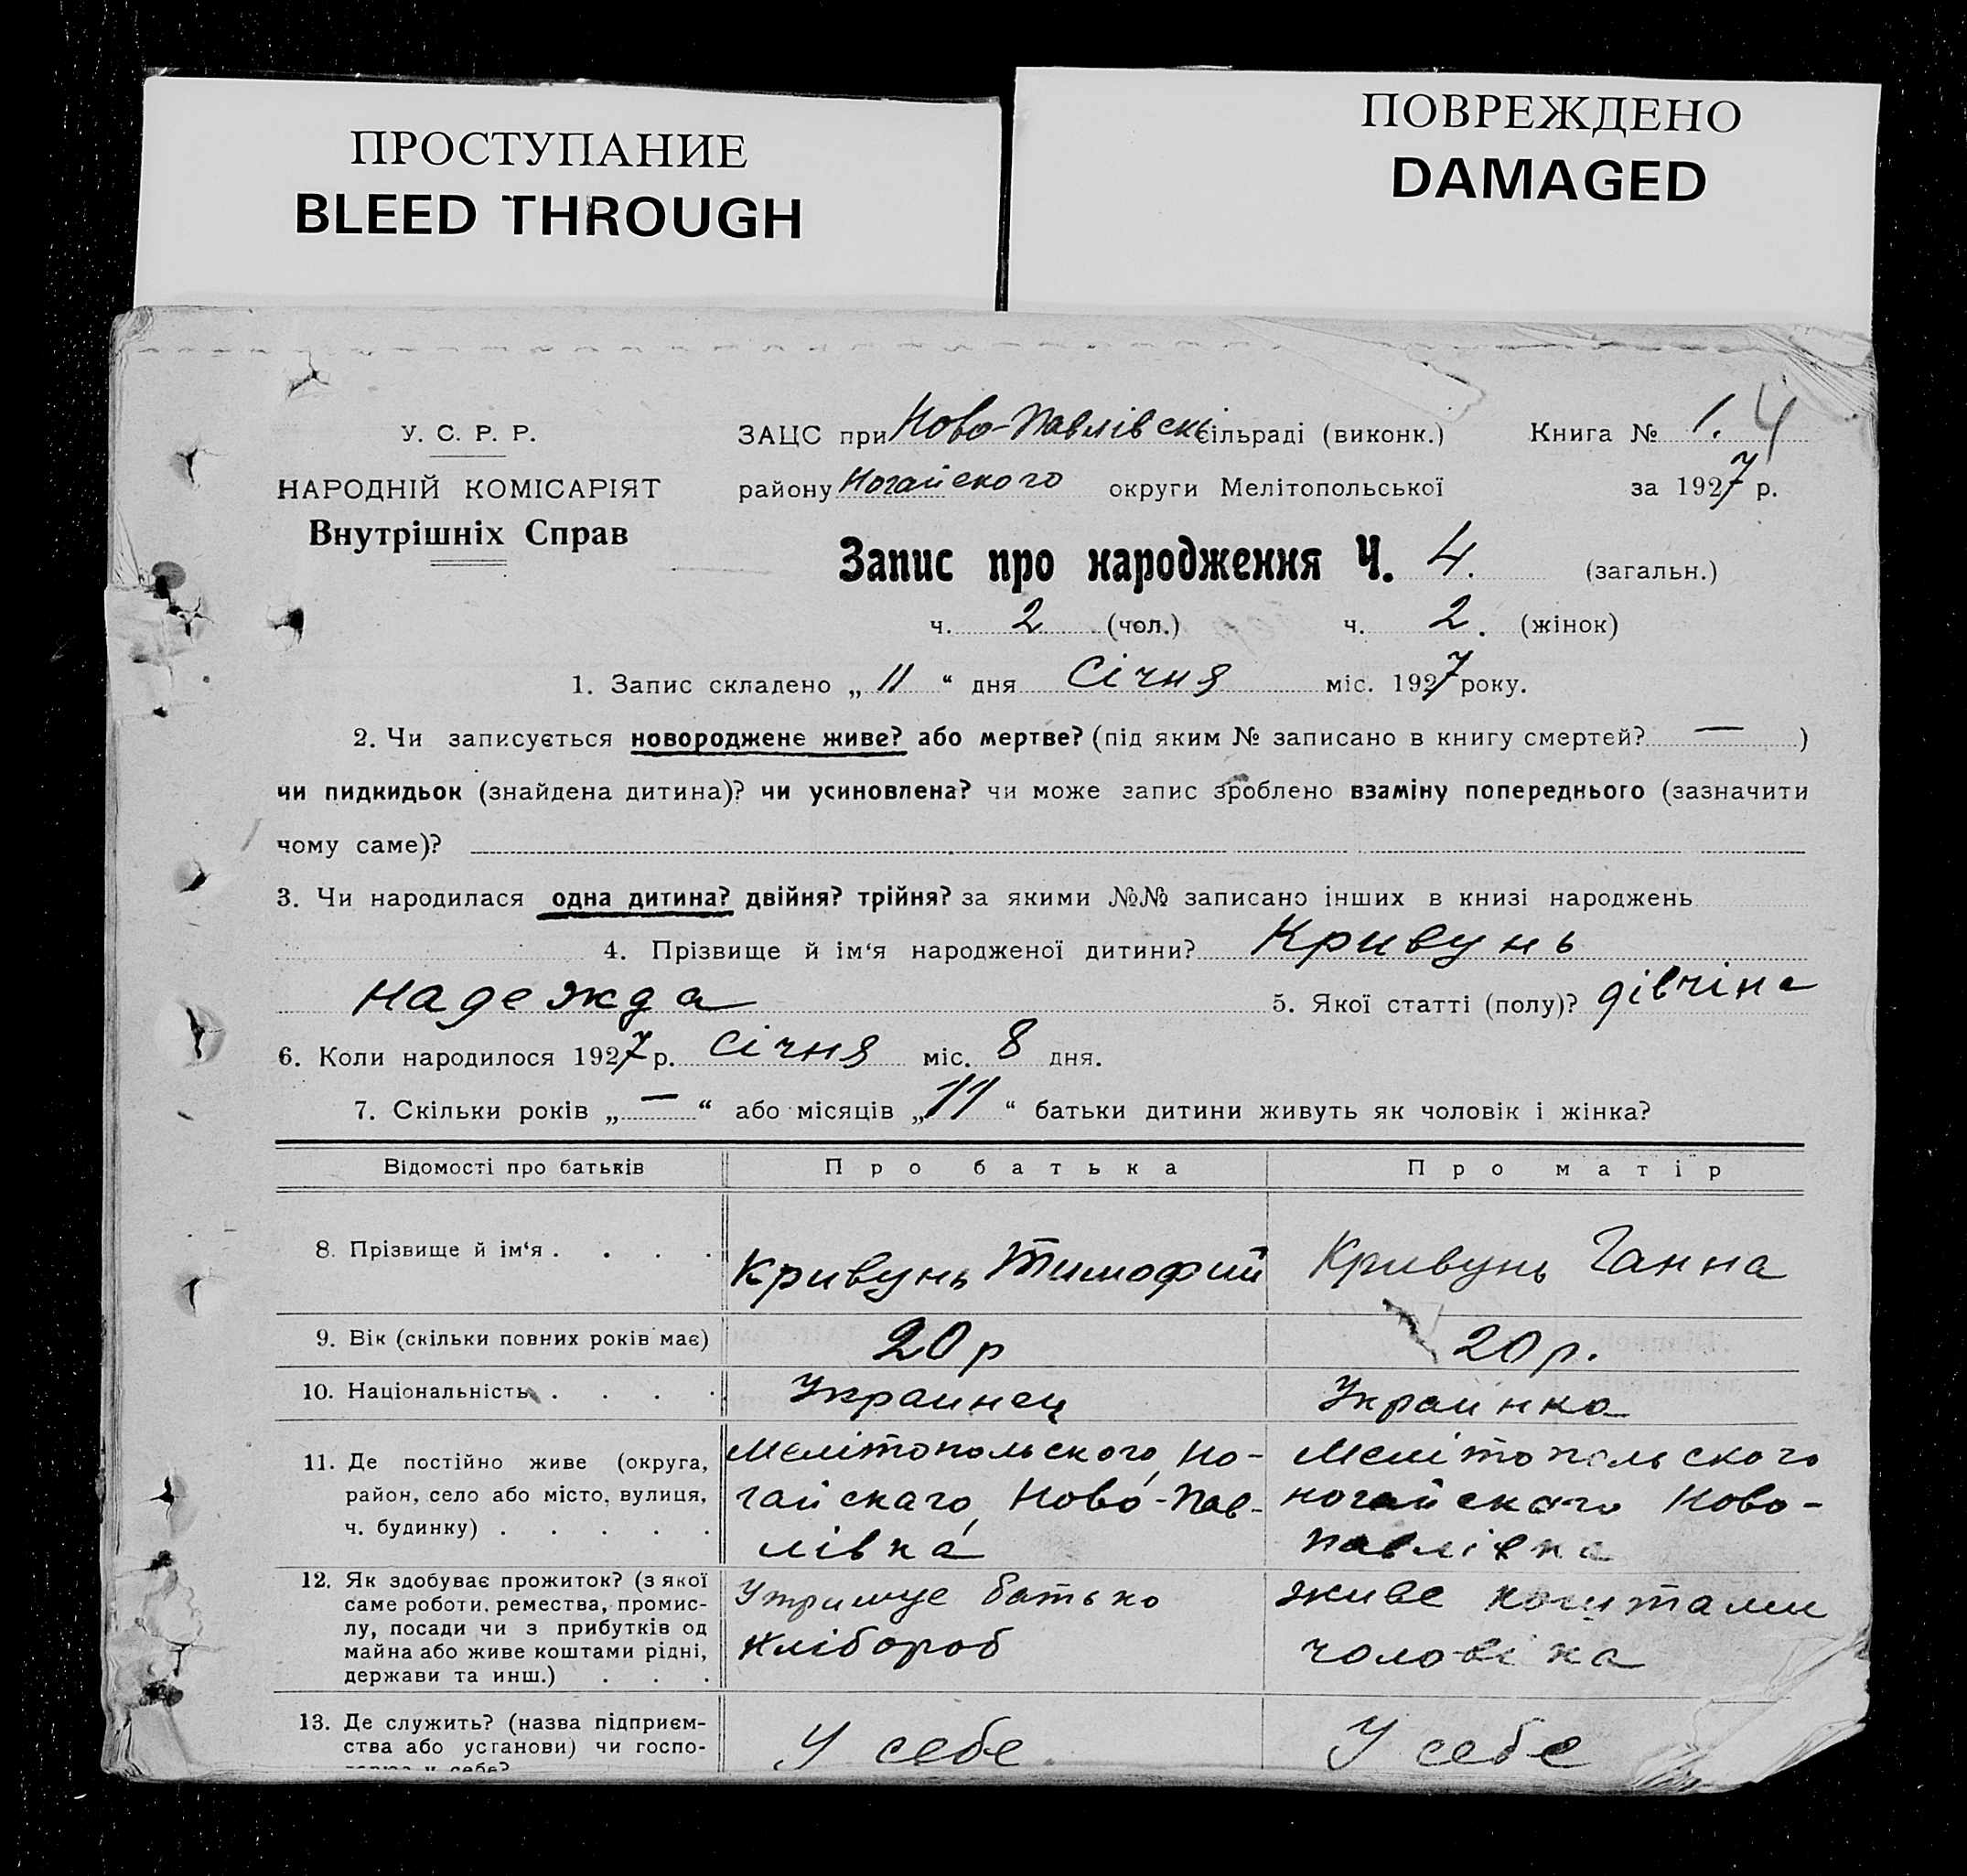 ПРОСТУПАНИЕ
BLEED THROUGH
ПОВРЕЖДЕНО
DAMAGED
У. С. Р. Р.
НАРОДНІЙ КОМІСАРІЯТ
Внутрішніх Справ
ЗАЦС при Ново-Павлівськ сільраді (виконк.) Книга № 1. 4
району Ногайского округи Мелітопольської за 1927 р.
Запис про народження Ч. 4. (загальн.)
ч. 2 (чол.) ч. 2. (жінок)
1. Запис складено „ 11 “ дня Січня міс. 1927 року.
2. Чи записується новороджене живе? або мертве? (під яким № записано в книгу смертей? — )
чи пидкидьок (знайдена дитина)? чи усиновлена? чи може запис зроблено взаміну попереднього (зазначити
чому саме)?
3. Чи народилася одна дитина? двійня? трійня? за якими №№ записано інших в книзі народжень
4. Прізвище й ім‘я народженої дитини? Кривунь
Надежда 5. Якої статті (полу)? дівчіна
6. Коли народилося 1927 р. Січня міс. 8 дня.
7. Скільки років „ — “ або місяців „ 11 “ батьки дитини живуть як чоловік і жінка?
Відомості про батьків Про батька Про матір
8. Прізвище й ім‘я . . . . Кривунь Тимофий Кривунь Ганна
9. Вік (скільки повних років має) 20 р 20 р.
10. Національність . . . . Украинец Украинка
11. Де постійно живе (округа, Мелітопольского, Но- Мелітопольского
район, село або місто, вулиця, гайскаго, Ново-Пав- ногайскаго Ново-
ч. будинку) . . . . . лівка павлівка
12. Як здобуває прожиток? (з якої Утримує батько живе коштами
саме роботи, ремества, промис-
лу, посади чи з прибутків од Хлібороб чоловіка
майна або живе коштами рідні,
держави та инш.) . . .
13. Де служить? (назва підприєм- У себе У себе
ства або установи) чи госпо-